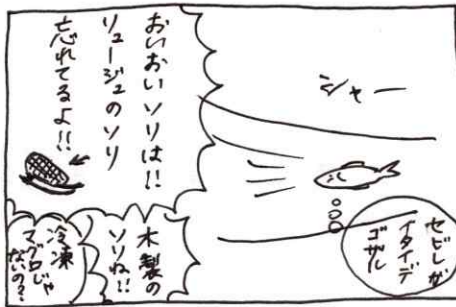 シャー
セビレが
イタイデ
ゴザル
おいおいソリは!!
リュージュのソリ
忘れてるよ!!
木製の
ソリね!!
冷凍
マグロじゃ
ないの?